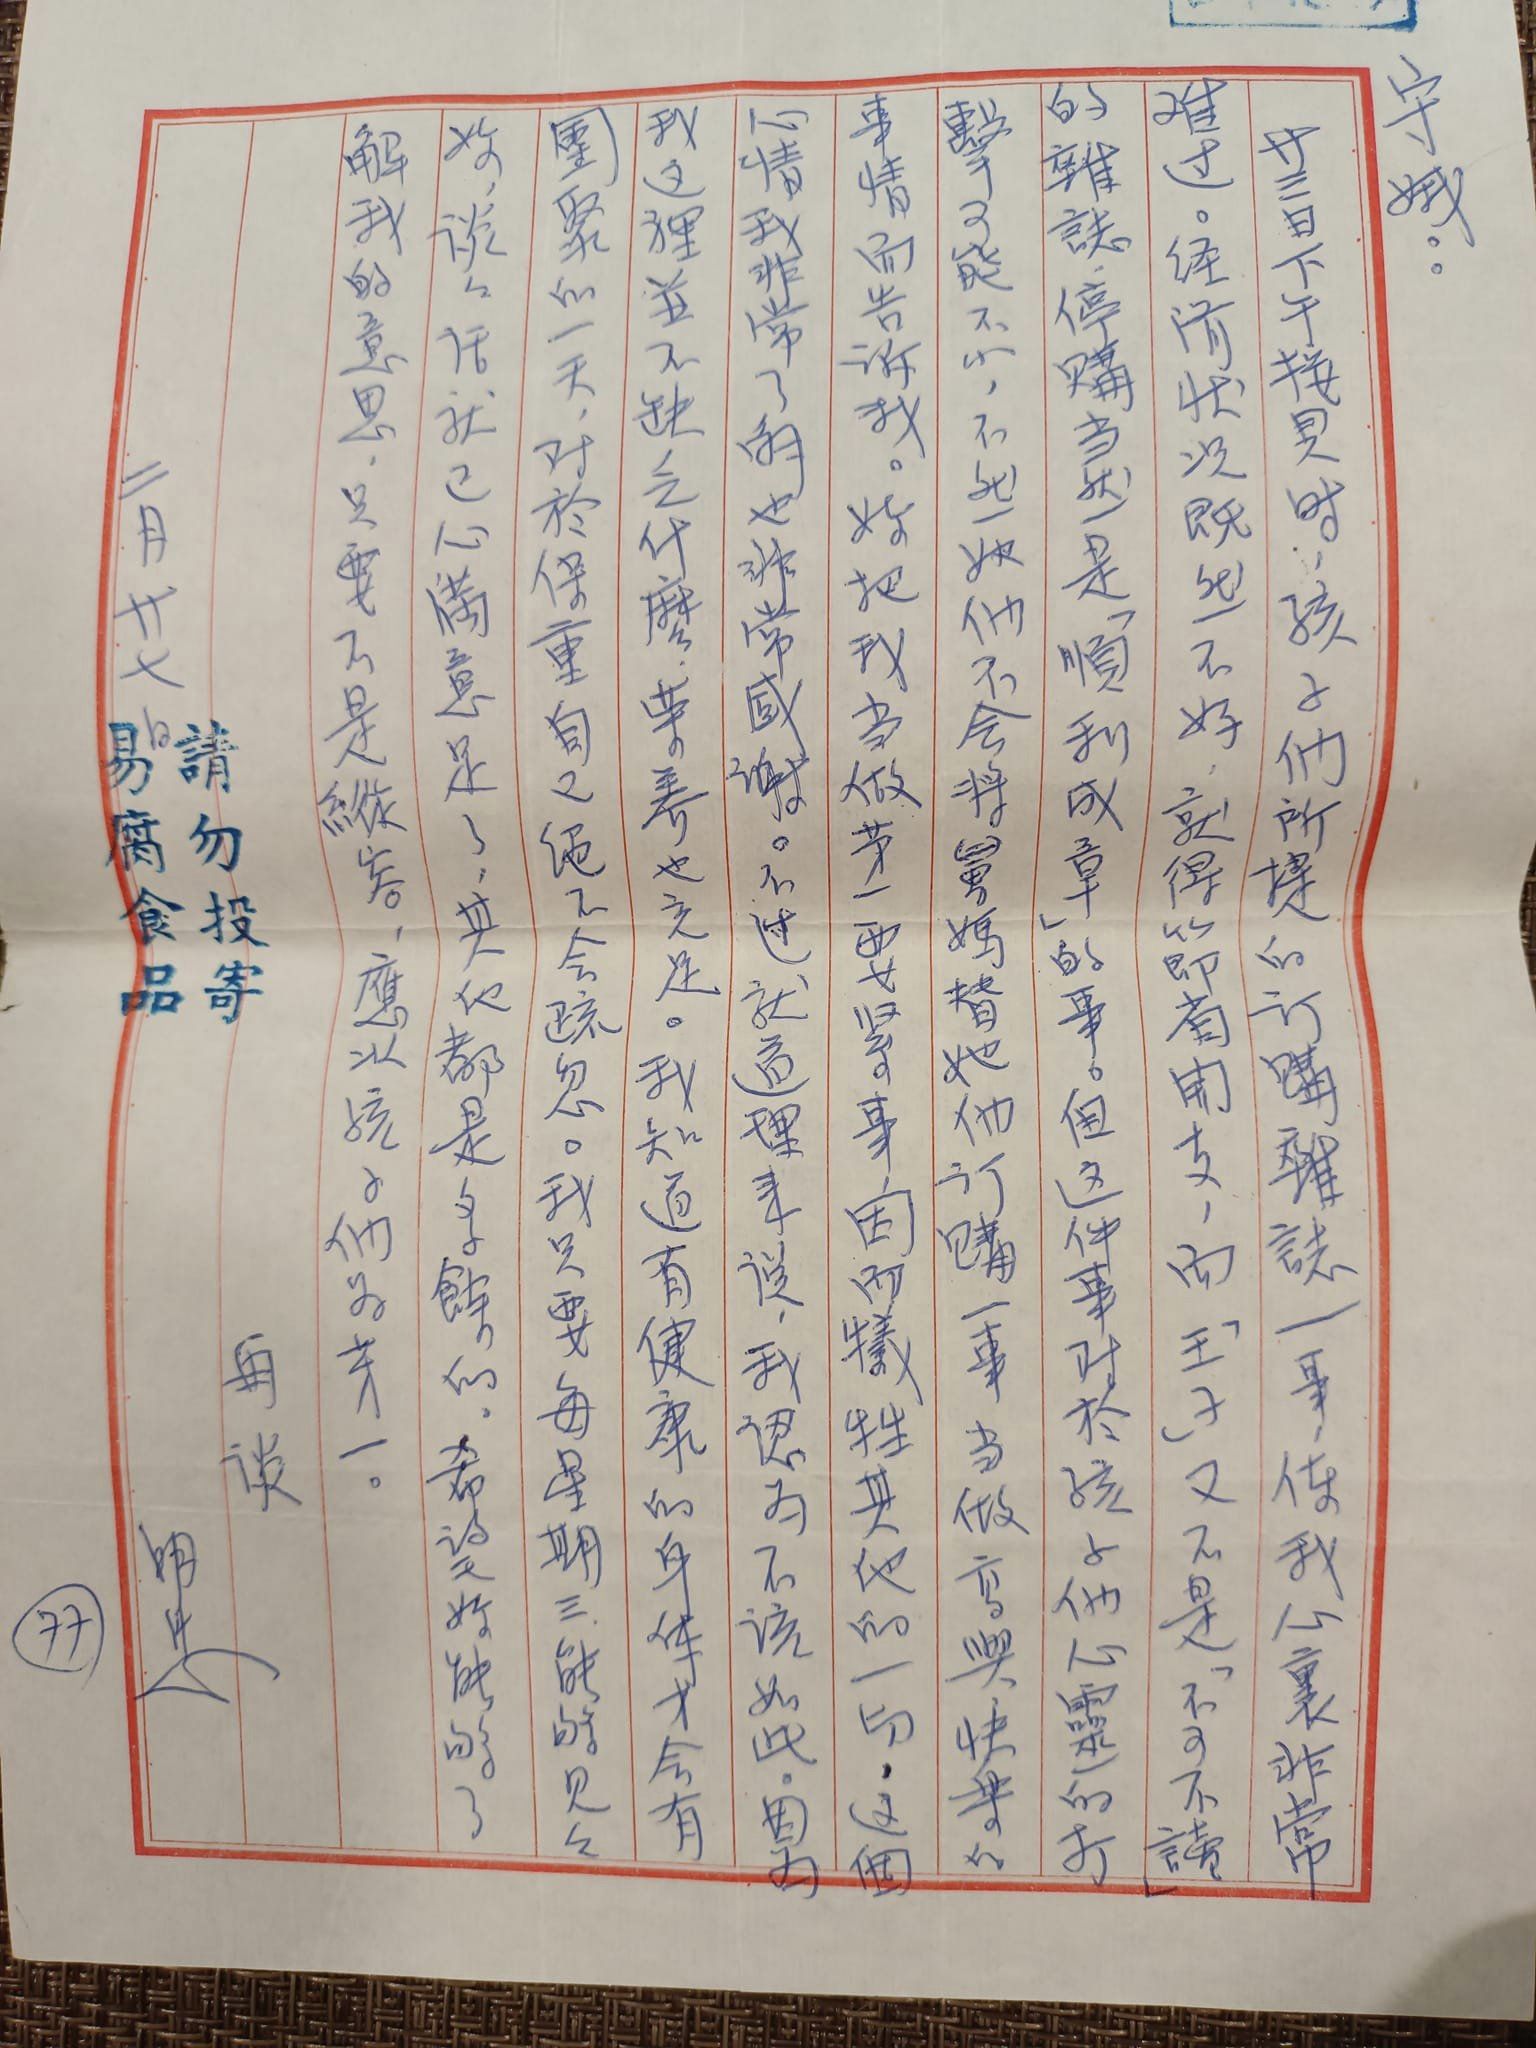 守娥。
廿三日下午接見時，孩子们所提的订購雜誌一事，使我心裏非常
难过。经济状况既然不好，就得節省開支，而「王子」又不是「不可不讀」
的雜誌，停購当然是「順利成章」的事。但这件事对於孩子们心靈的打
擊可能不小，不然她们不会將舅媽替她们订購一事当做高興快樂的
事情而告訴我。妳把我当做第一要緊事，因而犧牲其他的一切，这個
心情我非常了解也非常感謝。不过就道理来说，我認为不该如此。因为
我这裡並不缺乏什麼，荣養也充足。我知道有健康的身体才会有
團聚的一天，对於保重自己絕不会疏忽。我只要每星期三能夠見見
妳，谈谈话就已心滿意足了，其他都是多餘的。希望妳能夠了
解我的意思，只要不是縱容，應以孩子们为第一。
再谈
二月廿七日
請勿投寄
易腐食品
77